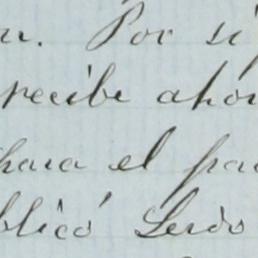 n. Por si
recibe ahor
hara el pa
blicó Lerdo